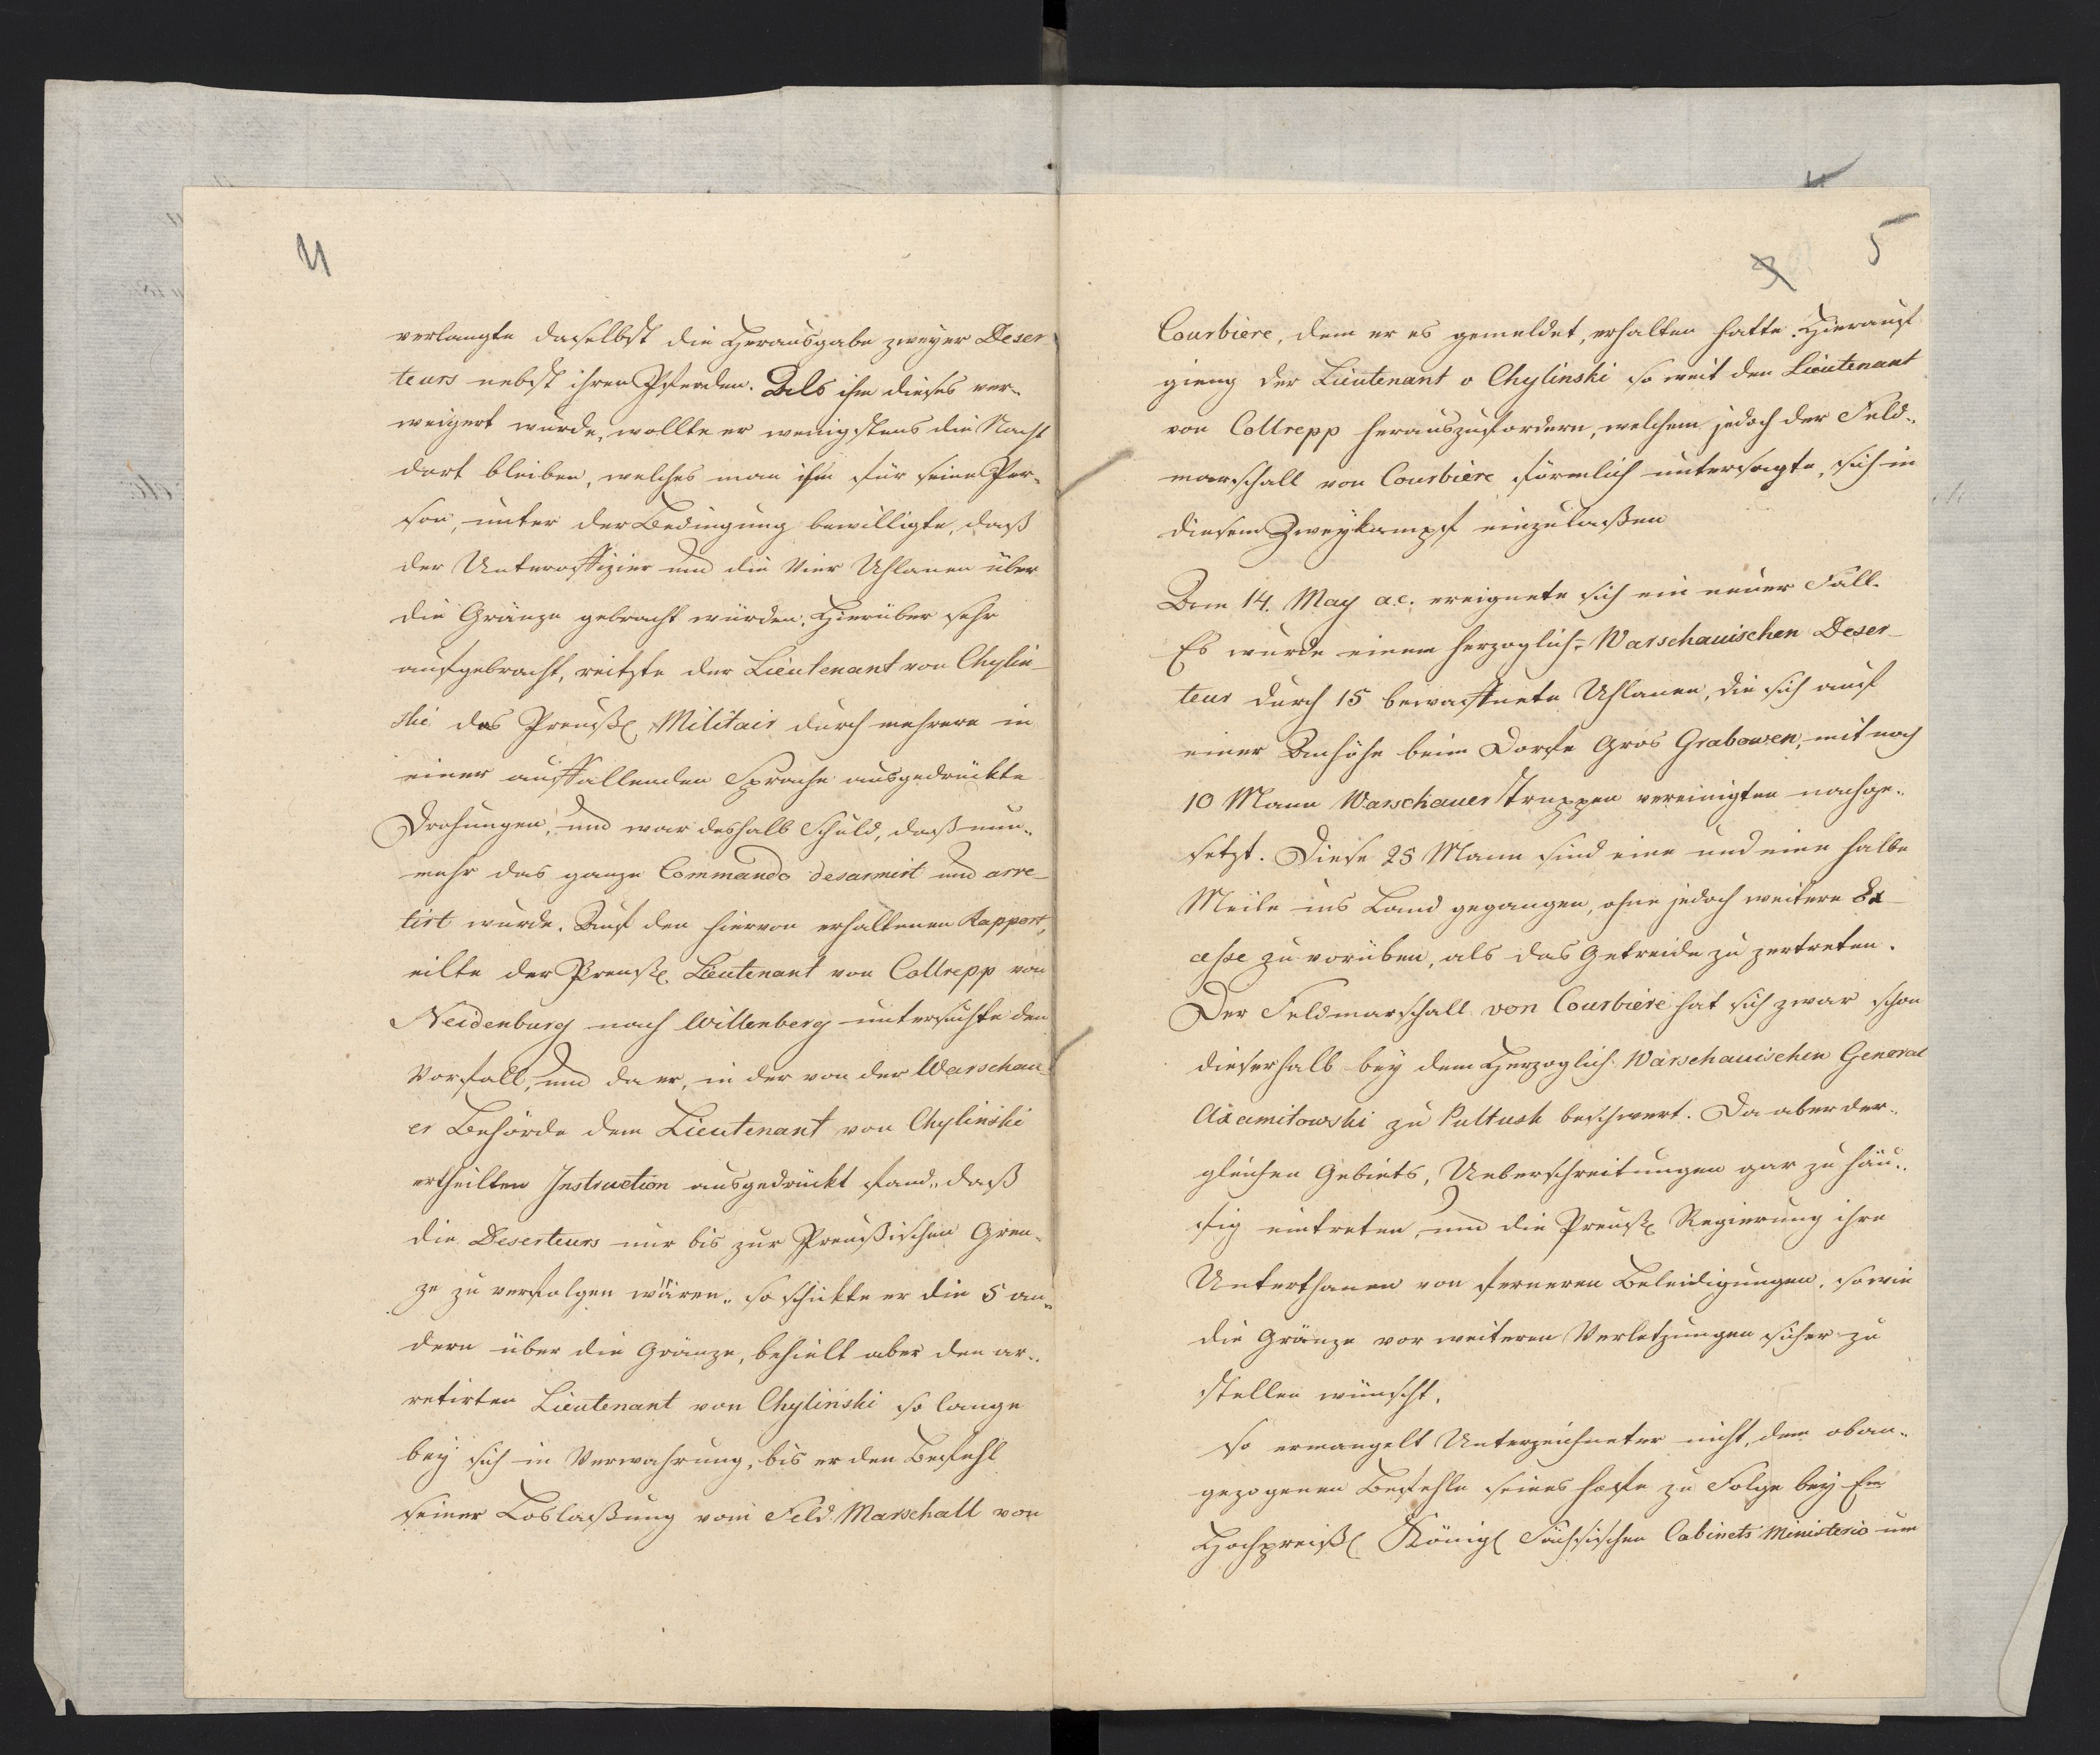 4
verlangte daselbst die Herausgabe zweyer Deser
teurs nebst ihren Pferden. Als ihm dieses ver-
weigert wurde, wollte er wenigstens die Nacht
dort bleiben, welches man ihm für seine Per-
son, unter der Bedingung bewilligte, daß
der Unteroffizier und die Vier Uhlanen über
die Gränze gebracht würden. Hierüber sehr
aufgebracht, reitzte der Lieutenant von Chylin-
ski das Preuß. Militair durch mehrere in
einer auffallenden Sprache ausgedrückte
Drohungen, und war deshalb Schuld, daß nun-
mehr das ganze Commando desarmirt und arre-
tirt wurde. Auf den hiervon erhaltenen Rapport,
eilte der Preuß. Lieutenant von Collrepp von
Neidenburg nach Willenberg untersuchte den
Vorfall, und da er, in der von der Warschau-
er Behörde dem Lieutenant von Chylinski
ertheilten Instruction ausgedrückt fand „daß
die Deserteurs nur bis zur Preußischen Gren-
ze zu verfolgen wären„ so schickte er die 5 an-
dern über die Gränze, behielt aber den ar-
retirten Lieutenant von Chylinski so lange
bey sich in Verwahrung, bis er den Befehl
seiner Loslaßung vom Feld Marschall von
5
3
Courbiere, dem er es gemeldet, erhalten hatte. Hierauf
gieng der Lieutenant v Chylinski so weit den Lieutenant
von Collrepp herauszufordern, welchem jedoch der Feld-
marschall von Courbiere förmlich untersagte, sich in
diesem Zweykampf einzulaßen
Den 14. May a.c. ereignete sich ein neuer Fall.
Es wurde einem herzoglich-Warschauischen Deser-
teur durch 15 bewaffnete Uhlanen, die sich auf
einer Anhöhe beim Dorfe Gros Grabowen, mit noch
10 Mann Warschauer Truppen vereinigten nachge-
setzt. Diese 25 Mann sind eine und eine halbe
Meile ins Land gegangen, ohne jedoch weitere Ex-
cesse zu verüben, als das Getreide zu zertreten.
Der Feldmarschall von Courbiere hat sich zwar schon
dieserhalb bey dem Herzoglich Warschauischen General
Axamitowski zu Pultusk beschwert. Da aber der-
gleichen Gebiets, Ueberschreitungen gar zu häu-
fig eintreten, und die Preuß. Regierung ihre
Unterthanen von ferneren Beleidigungen, sowie
die Gränze vor weiteren Verletzungen sicher zu
stellen wünscht,
so ermangelt Unterzeichneter nicht, dem oban-
gezogenen Befehle seines Hofes zu Folge bey Em
Hochpreißl. Königl. Sächsischen Cabinets Ministerio um